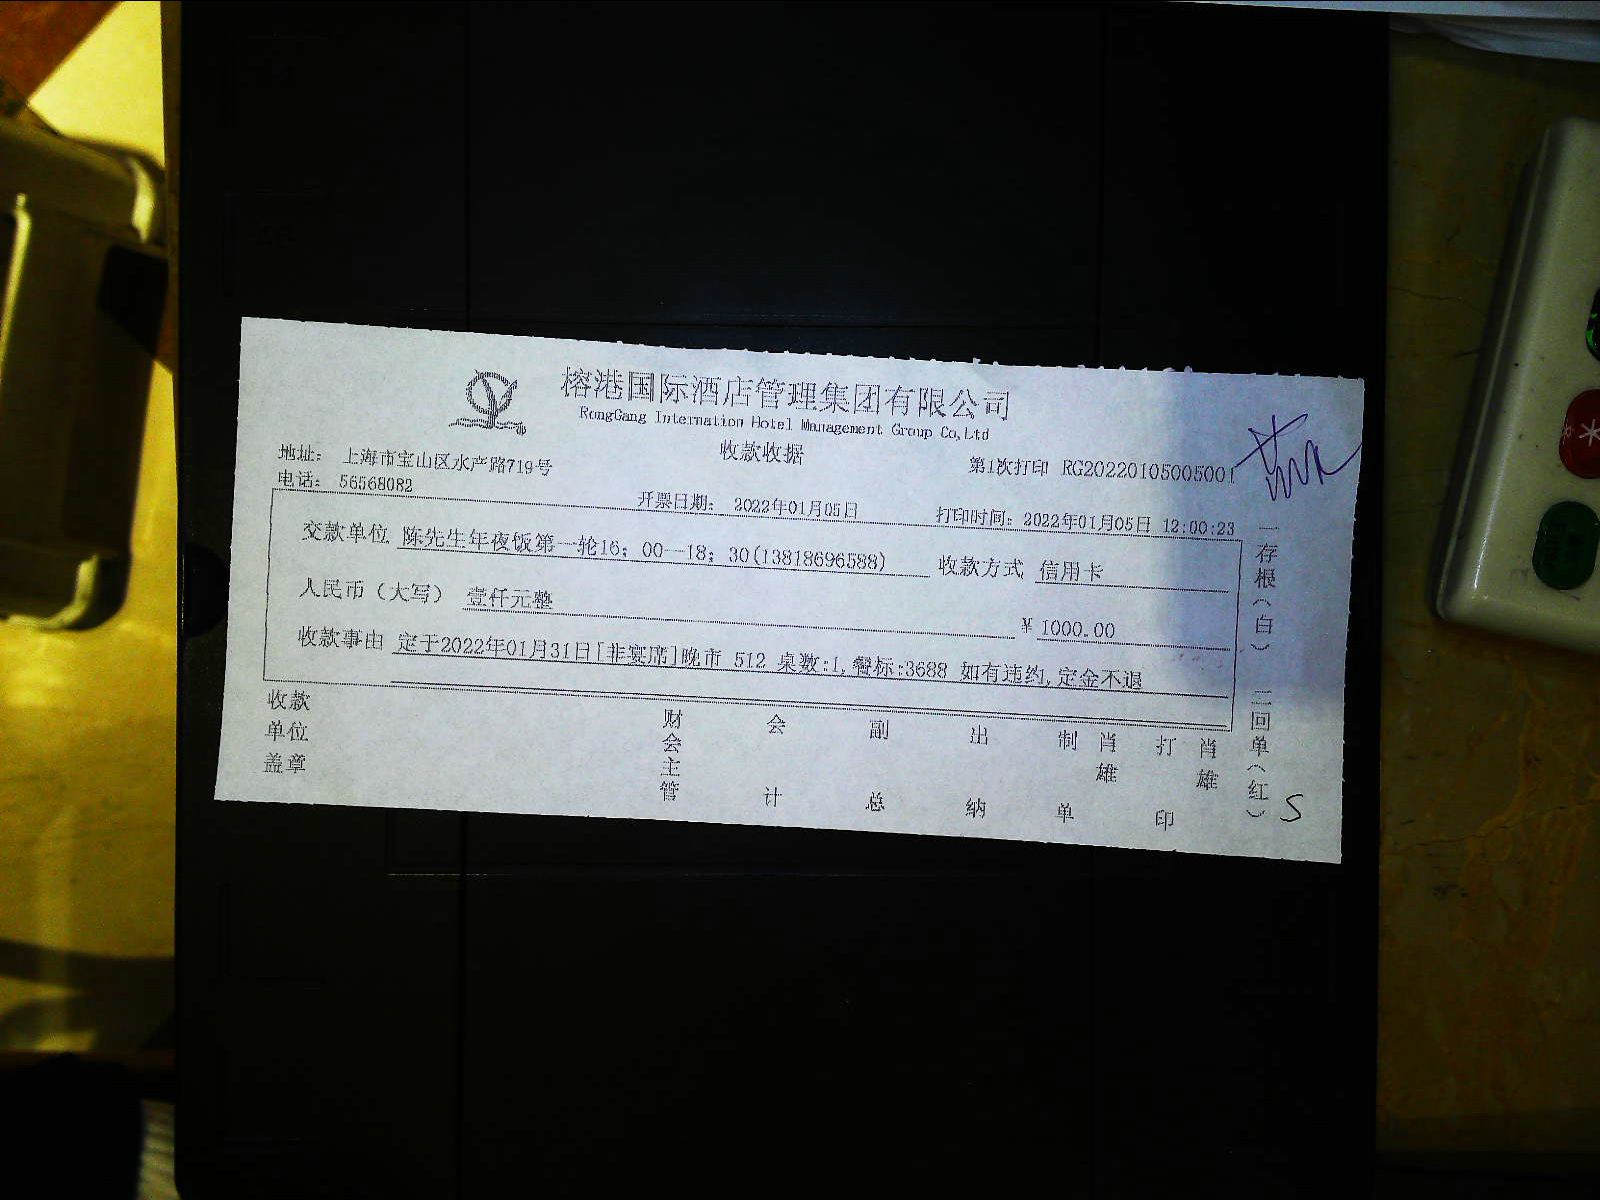 榕港国际酒店管理集团有限公司
RongGang Internation Hotel Management Group Co,Ltd
收款收据
地址： 上海市宝山区水产路719号
第1次打印 RG20220105005001
电话： 56568082
开票日期： 2022年01月05日
打印时间：2022年01月05日 12:00:23
交款单位 陈先生年夜饭第一轮16；00--18；30(13818696588)
收款方式 信用卡
人民币（大写） 壹仟元整
￥ 1000.00
收款事由 定于2022年01月31日[非宴席]晚市 512 桌数:1,餐标:3688 如有违约,定金不退
收款单位盖章
财会主管
会计
副总
出纳
制单
肖雄
打印
肖雄
一存根（白） 二回单（红）
S